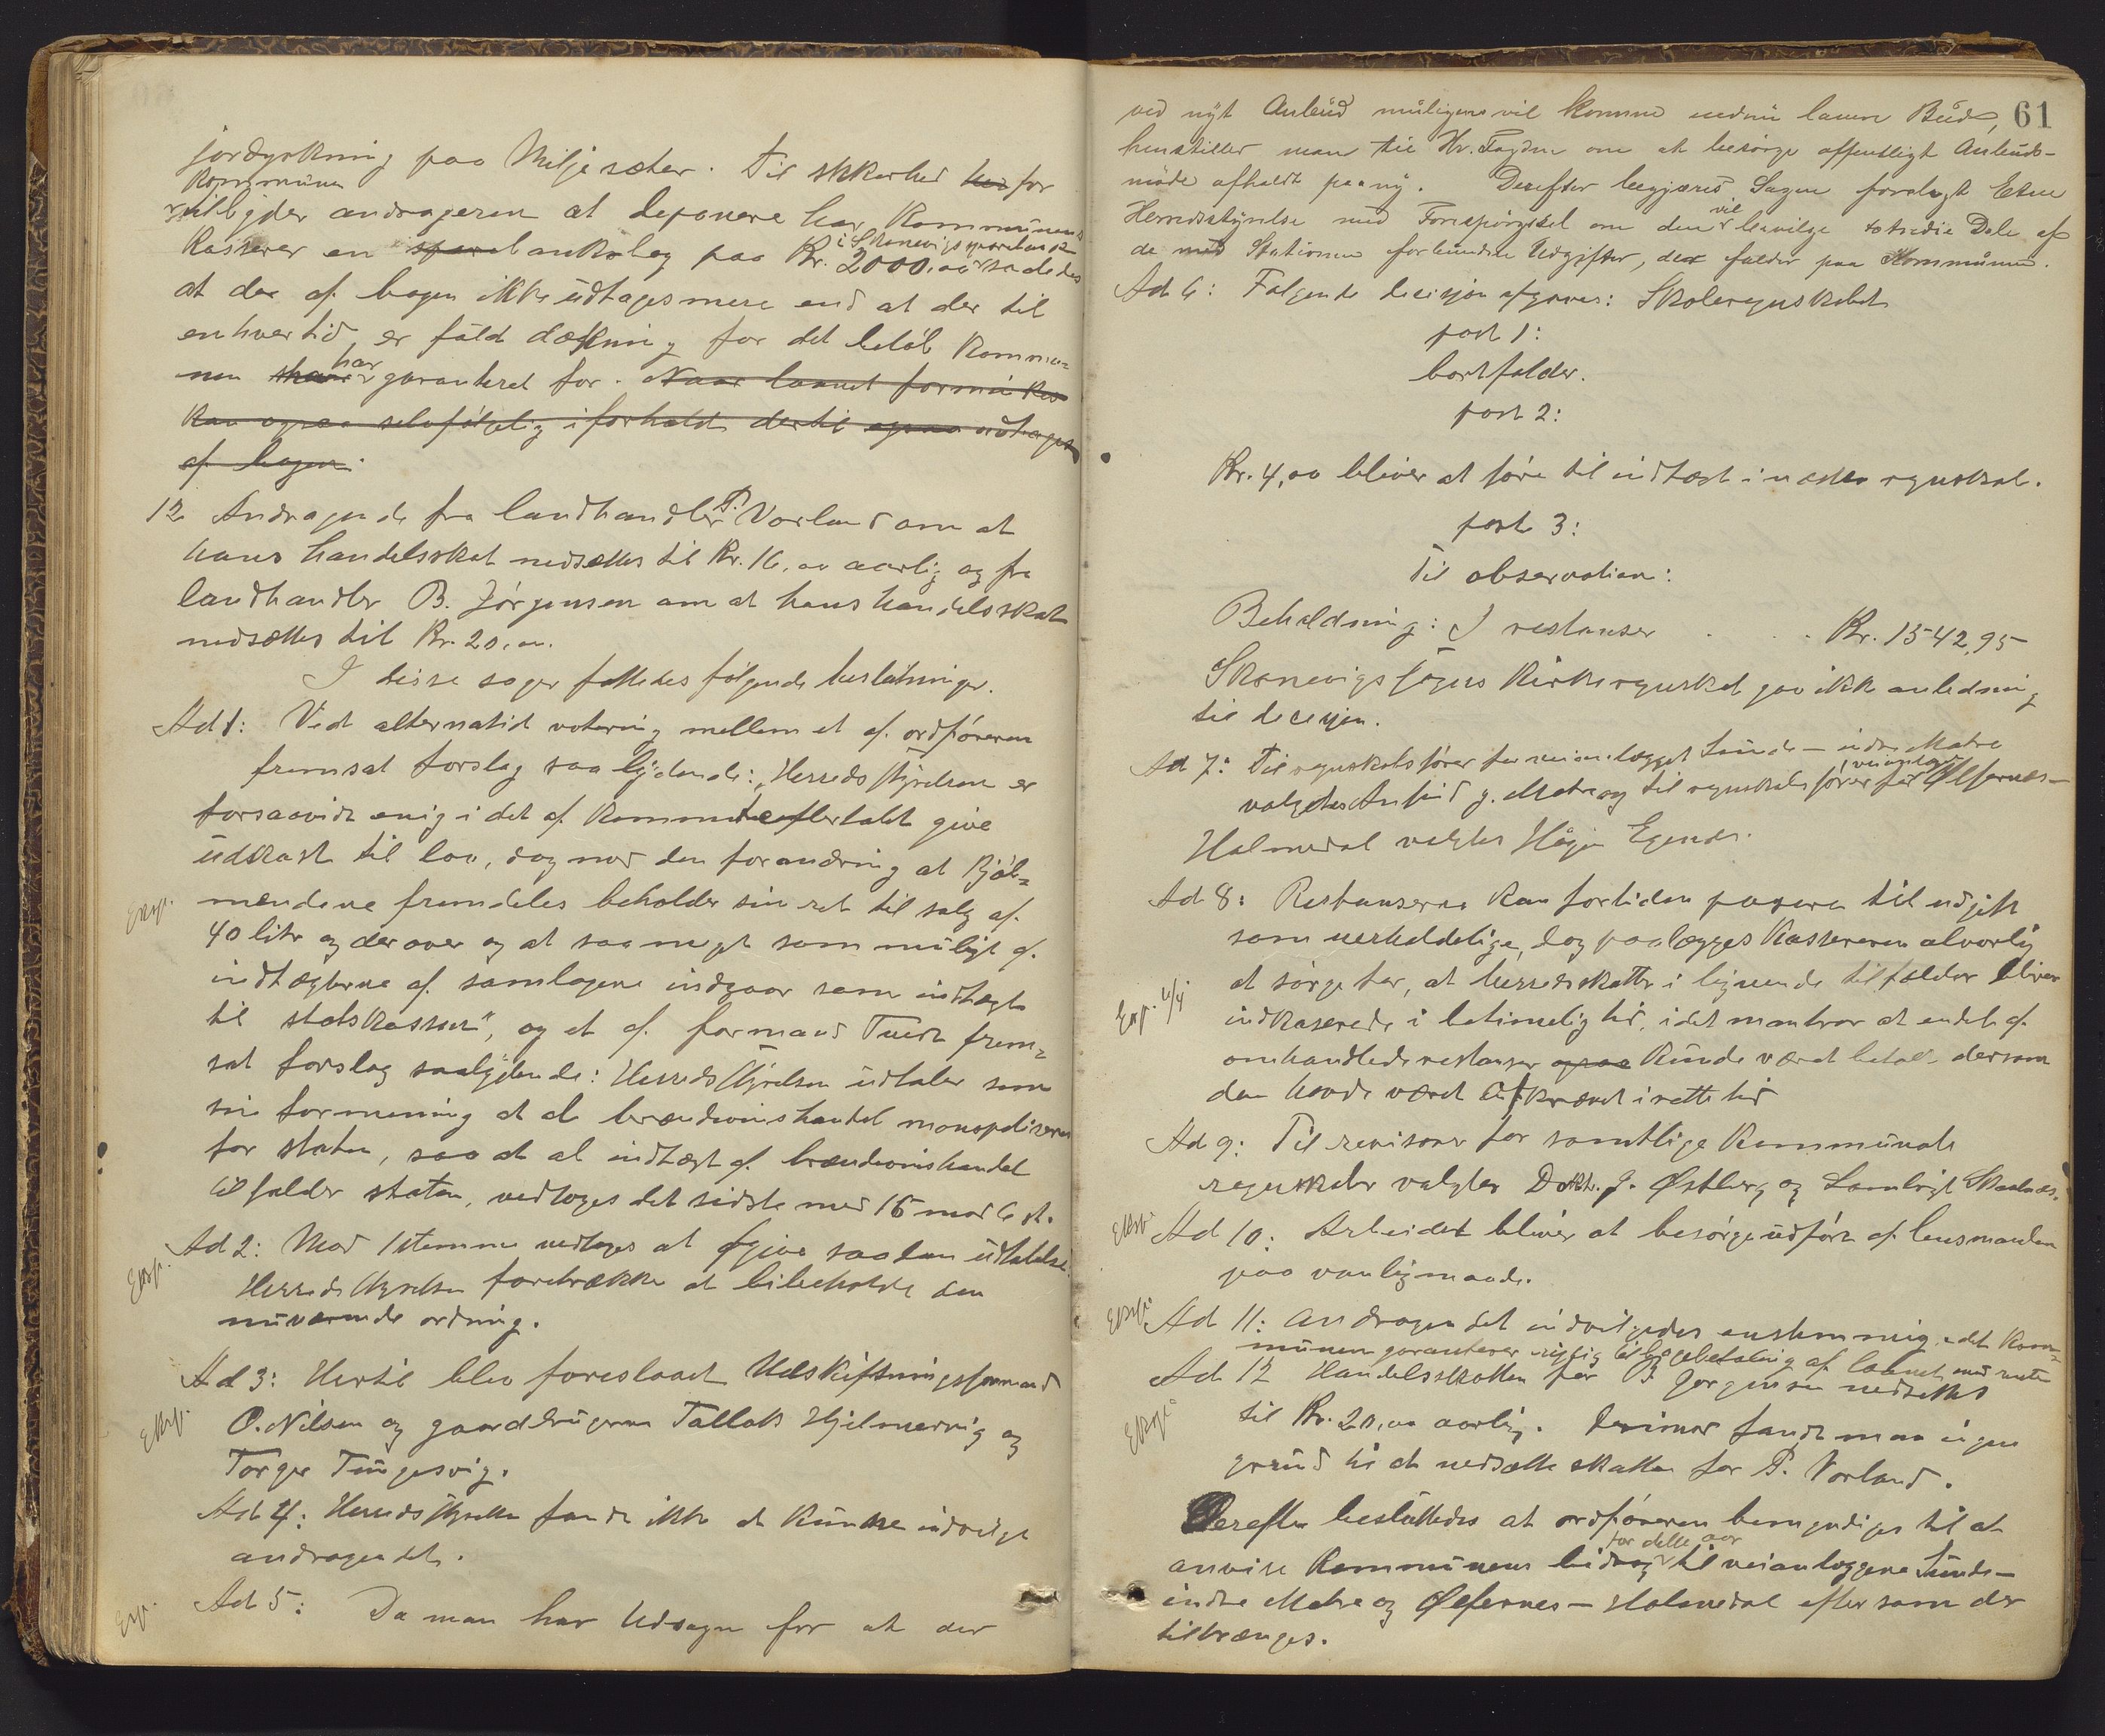 jordyrkning paa Miljesæter. Til sikkerhed hos for
Kommunen
tilbyder andrageren at deponere hos Kommunens
Kasserer en sparebankbog paa Kr. 2000,00 saaledes
i Skonevigs sparebank
at der af bogen ikke udtages mere end at der til
enhver tid er fuld dækning for det beløb Kommu-
nen skal har garanteret for. Naar laanet formindskes
kan ogsaa selvfølgelig i forhold dertil ogsaa udtages
af bogen.
12 Andragende fra landhandler P. Vorland om at
hans handelsskat nedsættes til Kr. 16,00 aarlig og fra
landhandler B. Jørgensen om at hans handelsskat
nedsættes til Kr. 20,00.
I disse sager fattedes følgende beslutninger.
Ad 1: Ved alternativ votering mellem et af ordføreren
fremsat forslag saa lydende: "Herredsstyrelsen er
forsaavidt enig i det af Komiteeflertalet givne
udkast til lov, dog med den forandring at Kjøb-
mændene fremdeles beholder sin ret til salg af
Exp.
40 litr og derover og at saa meget som muligt af
indtægterne af samlagene indgaar som indtægt
til statskassen", og et af formand Tvedt frem-
sat forslag saalydende: Herredsstyrelsen udtaler som
sin formening at al brændevinshandel monopoliseres
for staten, saa at al indtægt af brændevinshandel
tilfalder staten, vedtoges det sidste med 15 mod 6 st.
Ad 2: Mod 1 stemme vedtoges at afgive saadan udtalelse:
Exp.
Herredsstyrelsen foretrække at bibeholde den
nuværende ordning.
Ad 3: Hertil blev foreslaaet Udskiftningsformand
Eksp.
O. Nilsen og gaardbrugerne Tallak Hjelmervig og
Torger Tungesvig.
Ad 4: Herredsstyrelsen fandt ikke at kunne indvilge
andragendet.
Ad 5: Da man har Udsagn for at der
Exp.
61
ved nyt Anbud muligens vil komme endnu lavere Bud,
henstiller man til Hr. Fogden om at besørge offentligt Anbuds-
møde afholdt paa ny. Derefter begjæres Sagen forelagt Etne
Herredsstyrelse med Forespørgsel om den vil bevilge to tredie Dele af
de med Stationen forbundne Udgifter, der falder paa Kommunen.
Ad 6: Følgende decisjon afgaves: Skoleregnskabet
post 1:
bortfalder.
post 2:
Kr. 4,00 bliver at føre til indtægt i næste regnskab.
post 3:
Til observation:
Beholdning: I restanser . . . Kr. 1542,95
Skonevigs sogns Kirkeregnskab gav ikke anledning
til decisjon.
Ad 7: Til regnskabsfører for veianlægget Sunde - indre Matre
valgtes Anfind J. Matre og til regnskabsfører for veianlægget Ølfernes-
Holmedal valgtes Håge Egenes.
Ad 8: Restanserne kan fortiden passere til udgift
som uerholdelige, dog paalægges Kassereren alvorlig
at sørge for, at herredsskatte i lignende tilfælder bliver
Exp. 4/4
indkasserede i betimelig tid, idet man tror at endel af
omhandlede restanser ogsaa kunde været betalt dersom
den havde været afkrævet i rette tid
Ad 9: Til revisorer for samtlige Kommunale
regnskaber valgtes Dokt. J. Østberg og Lambrigt Skaalnæs.
Eksp.
Ad 10: Arbeidet bliver at besørge udført af lensmanden
paa vanlig maade.
Eksp.
Ad 11: Andragendet indvilgedes enstemmig, idet Kom-
munen garanterer rigtig tilbagebetaling af laanet med renter
Ad 12 Handelsskatten for B Jørgensen nedsættes
Eksp.
til Kr. 20,00 aarlig. Derimod fandt man ingen
grund til at nedsætte skatten for P. Vorland.
Derefter besluttedes at ordføreren bemyndiges til at
for dette aar
anvise Kommunens bidrag til veianlæggene Sunde-
indre Matre og Ølfernes - Holmedal efter som der
tiltrænges.